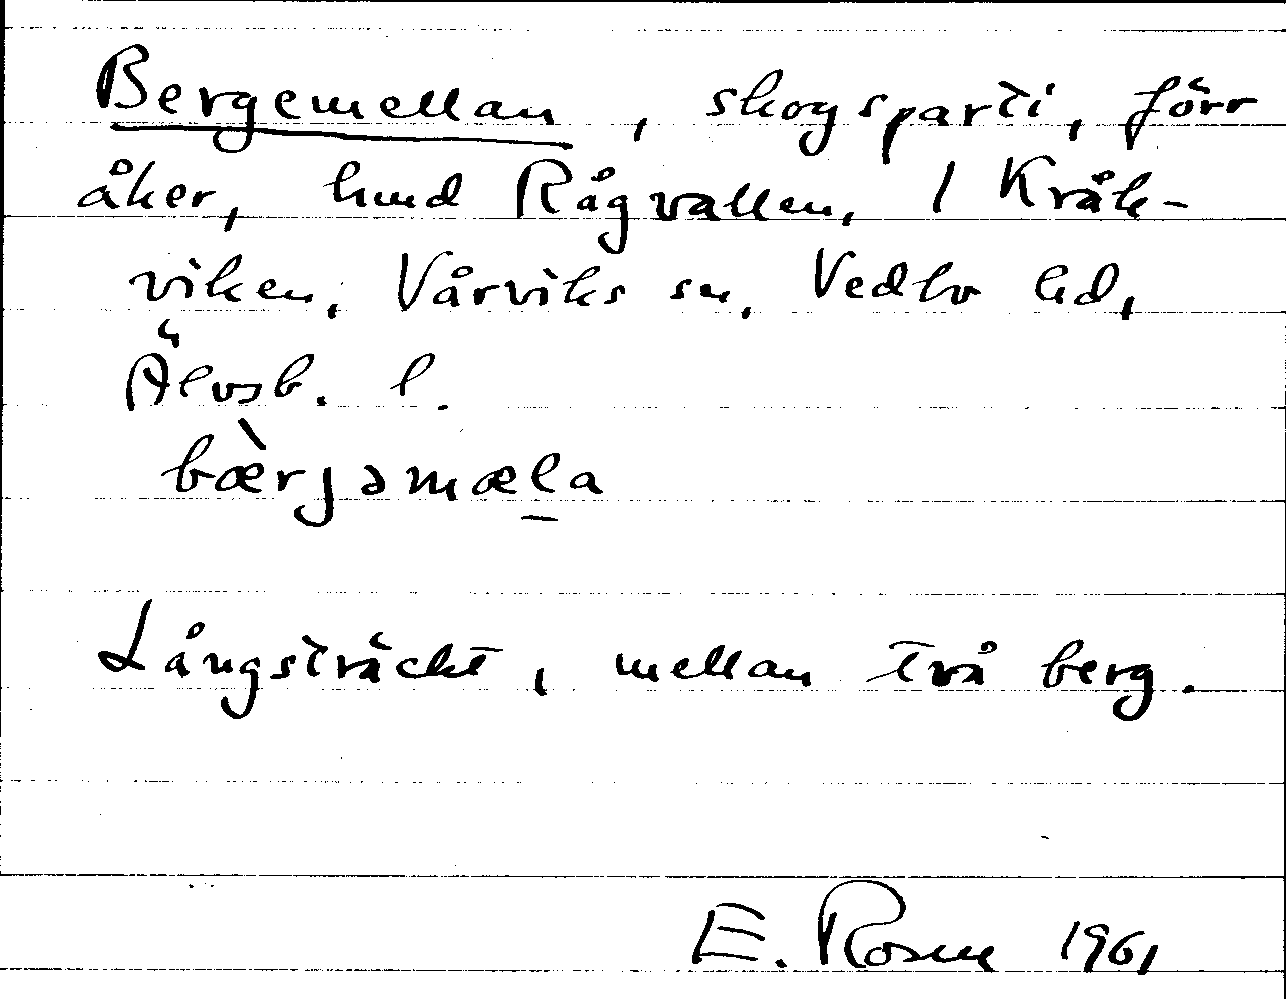 Bergemellan, skogsparti, förr
åker, hmd Rågvallen, 1 Kråk-
viken, Vårviks sn, Vedbo hd,
Älvsb. l.
bæ̀rjəmæl̲a
Långsträckt, mellan två berg.
E. Rosen 1961